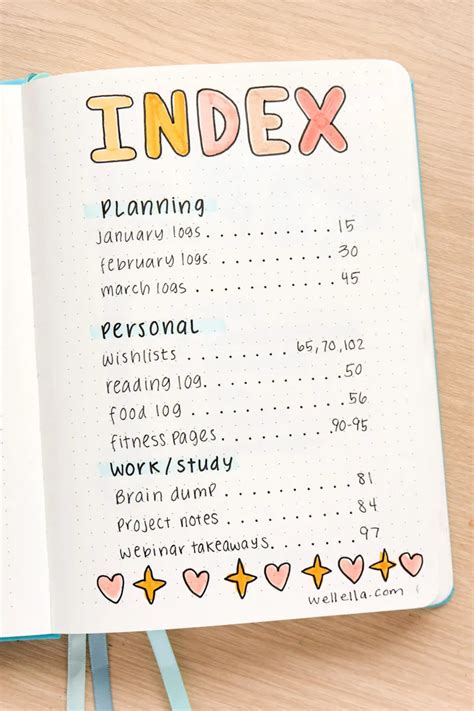 INDEX
Planning
January logs . . . . . . . . . . 15
february logs . . . . . . . . . 30
march logs . . . . . . . . . . . 45
Personal
wishlists . . . . . . . . 65,70,102
reading log. . . . . . . . . . . 50
food log . . . . . . . . . . . . 56
fitness pages . . . . . . . . 90-95
Work/Study
Brain dump . . . . . . . . . . 81
Project notes . . . . . . . . . 84
webinar takeaways. . . . . . . 97
wellella.com